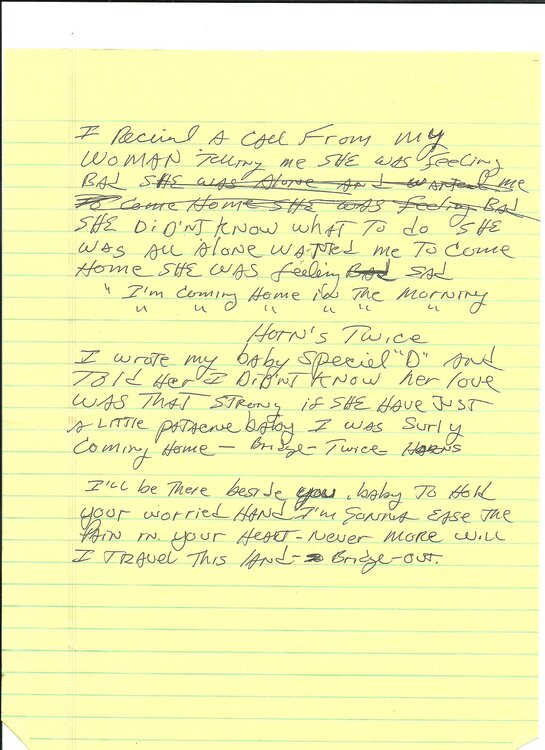 I Recived A Call From my
Woman Telling me She was feeling
Bad She was Alone And wanted me
To Come Home She was feeling Bad
She Didn't know what To do She
was All Alone Wanted me To Come
Home She was feeling Bad Sad
" I'm Coming Home in The Morning
" " " " " "
Horn's Twice
I wrote my baby Special "D" And
Told Her I Didn't Know her love
was That Strong if She Have Just
A little Pataene baby I was Surly
Coming Home - Bridge - Twice - Horns
I'll be There beside you, baby To Hold
your worried Hand I'm Gonna Ease The
Pain in your Heart - Never More will
I Travel This land - Bridge - out.